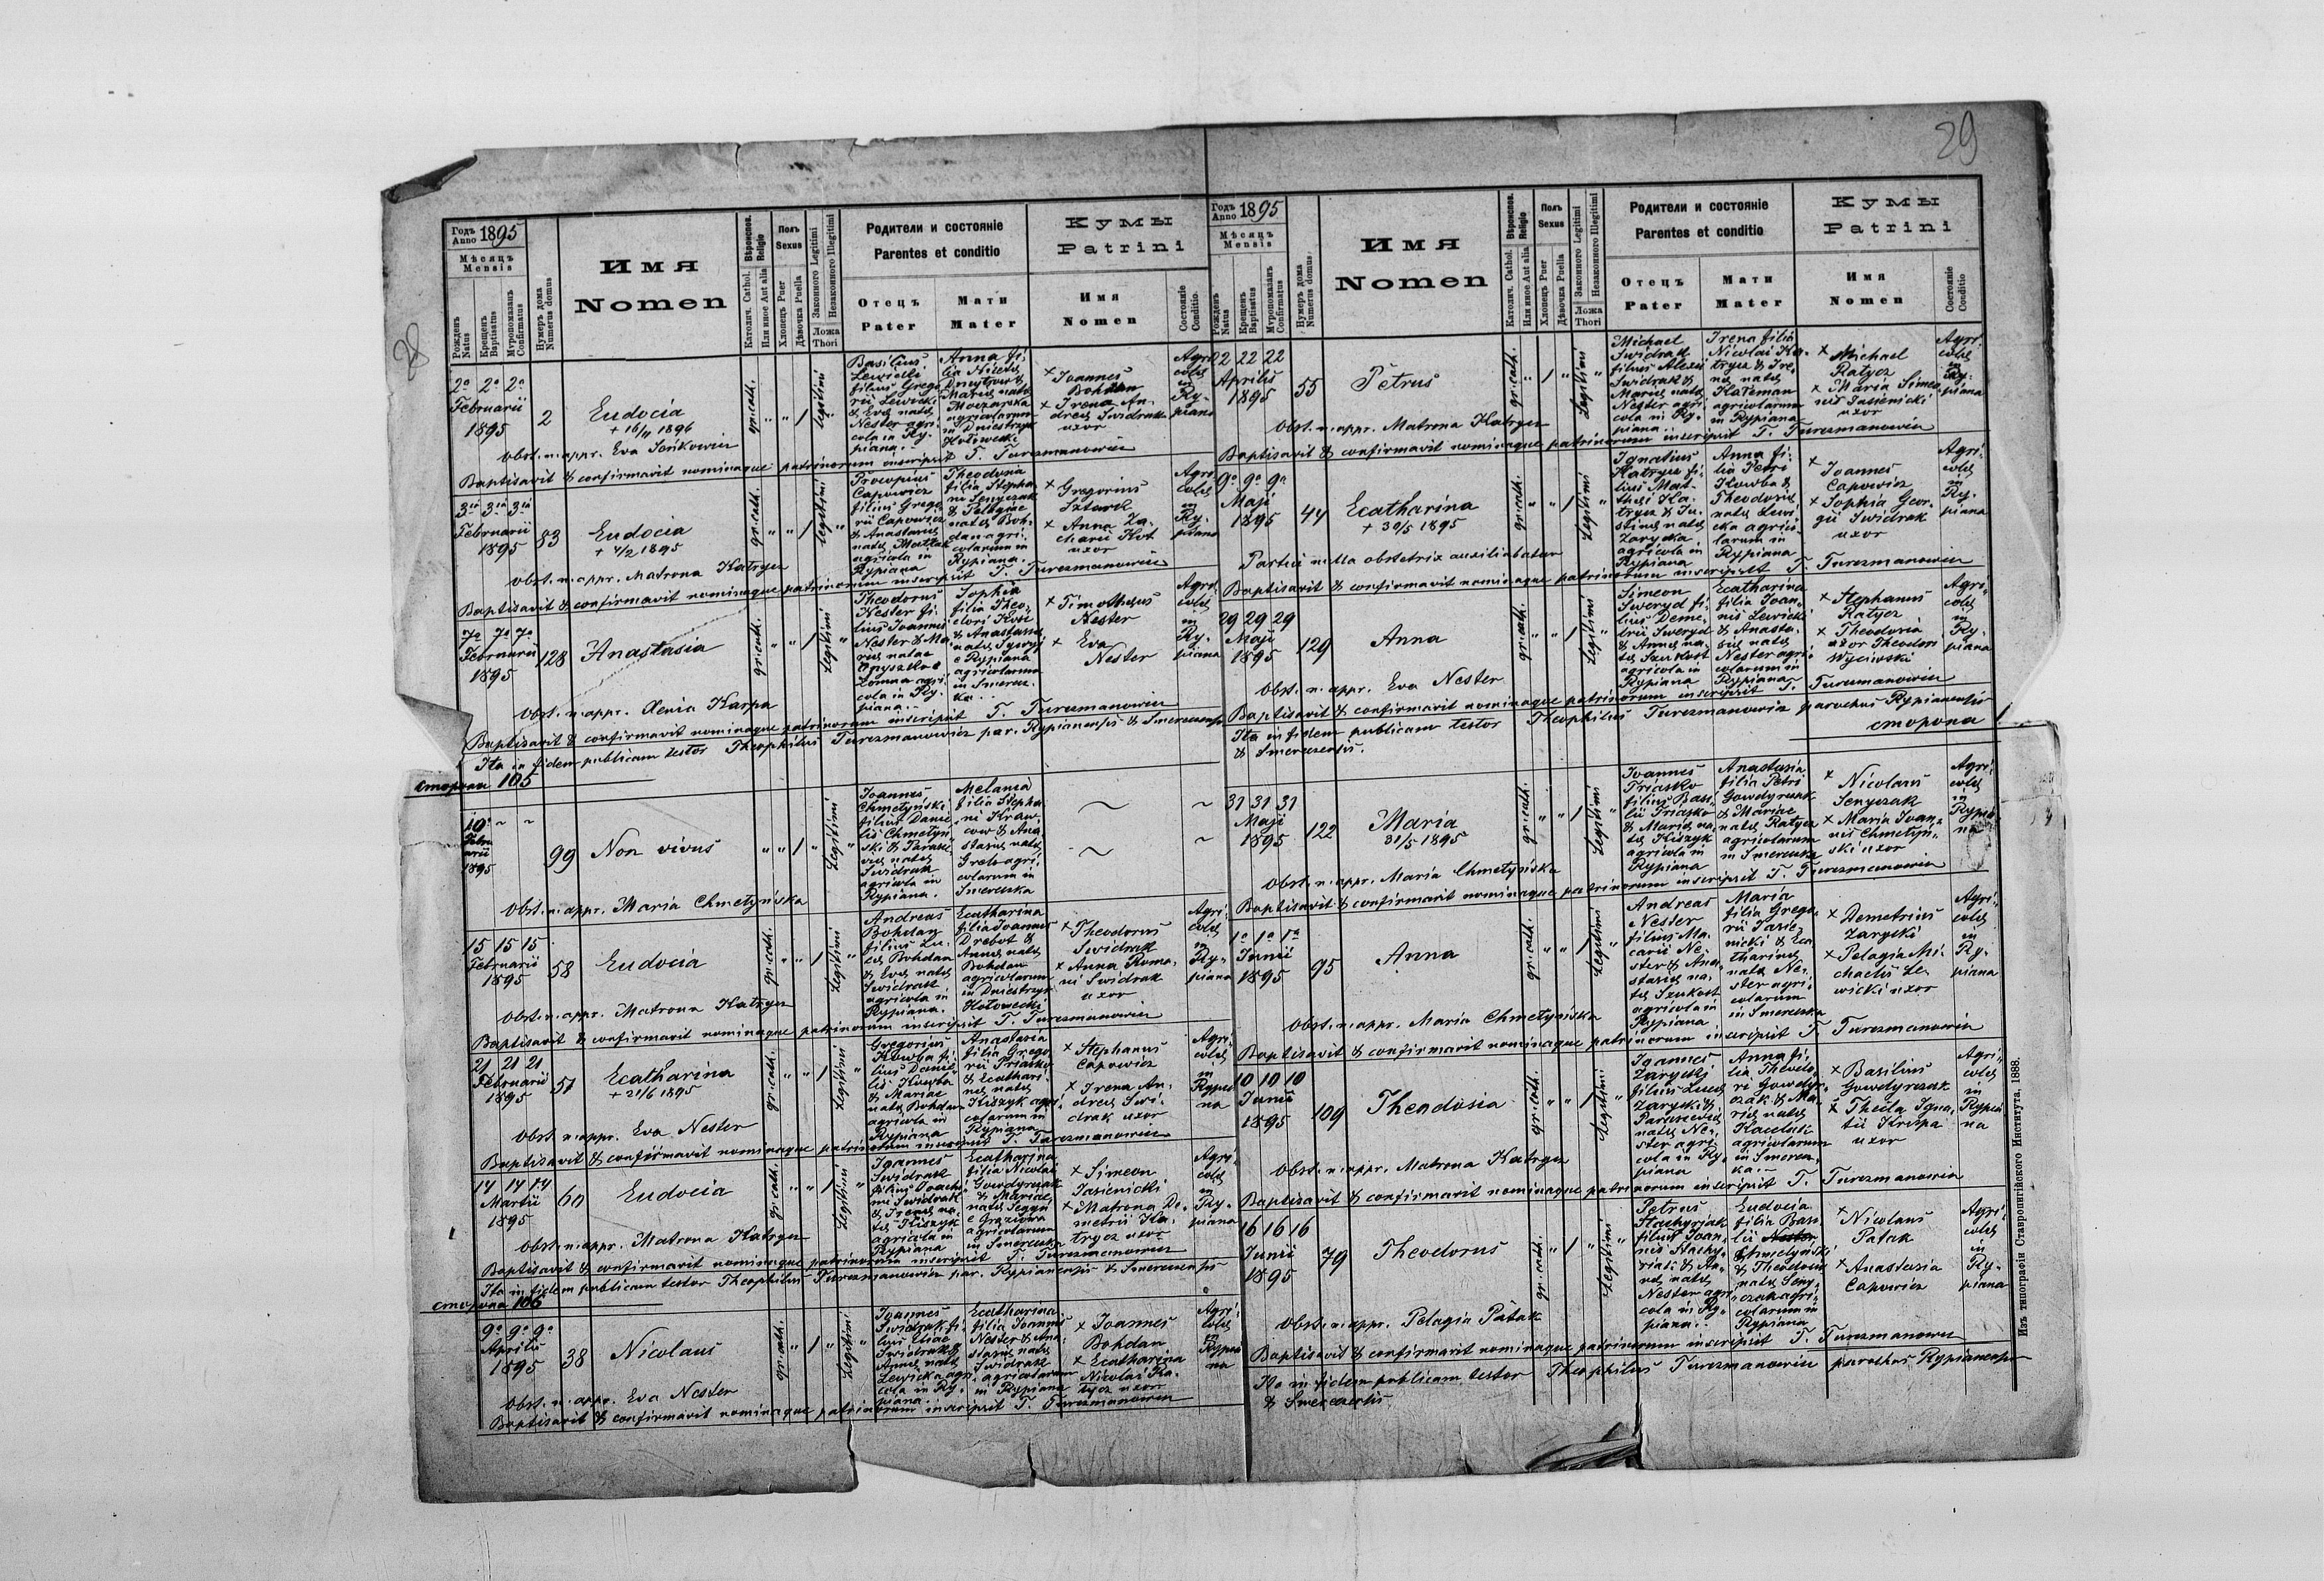 29
28
Годъ
Anno 1895
Мѣсяцъ
Mensis
Рожденъ
Natus
Крещенъ
Baptisatus
Муропомазанъ
Confirmatus
Нумеръ дома
Numerus domus
Имя
Nomen
Вѣроисповѣд.
Religio
Католич. Cathol.
Или иное Aut alia
Полъ
Sexus
Хлопецъ Puer
Дѣвочка Puella
Законного Legitimi
Незаконного Illegitimi
Ложа
Thori
Родители и состояніе
Parentes et conditio
Отецъ
Pater
Мати
Mater
Кумы
Patrini
Имя
Nomen
Состояніе
Conditio
2a 2a 2a
Februarii
1895
2
Eudocia
+ 16/11 1896
gr. cath.
Legitimi
Basilius
Lewicki
filius Grego
rii Lewicki
& Eva nata
Nester agri
cola in Ry-
piana.
Anna fi-
lia Nicolai
Dmytrow &
Maria nata
Moczarska
agricolarum
in Dniestrzyk
Hołowecki
× Joannes
Bohdan
× Irena An-
drea Swidrak
uxor
Agri
colae
in
Ry-
piana
Obst. n. appr. Eva Seńkowicz
Baptisavit & confirmavit nominaque patrinorum inscripsit T. Turczmanowicz
3ia 3ia 3ia
Februarii
1895
83
Eudocia
+ 4/2 1895
gr. cath.
Legitimi
Procopius
Capowicz
filius Grego
rii Capowicz
& Anastasia
nata Matłak
agricola in
Rypiana
Theodosia
filia Stepha
ni Senyczak
& Pelagiae
nata Boh-
dan agri-
colarum in
Rypiana.
× Gregorius
Szturk
× Anna Za-
charii Kot
uxor
Agri
colae
in
Ry-
piana
Obst. n. appr. Matrona Katrycz
Baptisavit & confirmavit nominaque patrinorum inscripsit T. Turczmanowicz
7a 7a 7a
Februarii
1895
128
Anastasia
gr. cath.
Legitimi
Theodorus
Nester fi-
lius Joannes
Nester & Ma-
ria natae
Onyszko e
Łomna agri-
cola in Ry-
piana.
Sophia
filia Theo-
dori Koci
& Anastasia
nata
e Rypiana
agricolarum
in Smerecz-
ka.
× Timotheus
Nester
× Eva
Nester
Agri
colae
in
Ry-
piana
Obst. n. appr. Xenia Karpa
Baptisavit & confirmavit nominaque patrinorum inscripsit T. Turczmanowicz
Ita in fidem publicam testor Theophilus Turczmanowicz par. Rypianensis & Smereczensis
сторона 105
10a ~ ~
Februarii
1895
99
Non vivus
Legitimi
Joannes
Chmetyński
filius Danie
lis Chmetyń
ski & Parasc
via nata
Swidrak
agricola in
Rypiana.
Melania
filia Stepha
ni Kraw-
cow & Ana
stasia nata
Greb agri-
colarum in
Smereczka
Obst. n. appr. Maria Chmetyńska
15 15 15
Februarii
1895
58
Eudocia
gr. cath.
Legitimi
Andreas
Bohdan
filius Lu-
cas Bohdan
& Eva nata
Swidrak
agricola in
Rypiana.
Ecatharina
filia Joannes
Drebot &
Anna nata
Bohdan
agricolarum
in Dniestrzyk
Hołowecki
× Theodorus
Swidrak
× Anna Roma-
ni Swidrak
uxor
Agri-
colae
in
Ry-
piana
Obst. n. appr. Matrona Katrycz
Baptisavit & confirmavit nominaque patrinorum inscripsit T. Turczmanowicz
21 21 21
Februarii
1895
51
Ecatharina
+ 21/6 1895
gr. cath.
Legitimi
Gregorius
Kowba fi-
lius Danie-
lis Kowba
& Mariae
nata Bohdan
agricola in
Rypiana
Anastasia
filia Grego
rii Priasko
& Ecathari-
na nata
Kiszyk agri-
colarum in
Rypiana
× Stephanus
Capowicz
× Irena An-
drea Swi-
drak uxor
Agri-
colae
in
Rypia
na
Obst. n. appr. Eva Nester
Baptisavit & confirmavit nominaque patrinorum inscripsit T. Turczmanowicz
14 14 14
Martii
1895
60
Eudocia
gr. cath.
Legitimi
Joannes
Swidrak
filius Joachi
mi Swidrak
& Irena na-
ta Kiszyk
agricola in
Rypiana
Ecatharina
filia Nicolai
Gowdyrczak
& Mariae
nata Segyn
e Graziowa
agricolarum
in Smereczka
× Simeon
Jasienicki
× Matrona De-
metrii Ka-
trycz uxor
Agri-
colae
in
Ry-
piana
Obst. n. appr. Matrona Katrycz
Baptisavit & confirmavit nominaque patrinorum inscripsit T. Turczmanowicz
Ita in fidem publicam testor Theophilus Turczmanowicz par. Rypianensis & Smereczensis
сторона 106
9a 9a 9a
Aprilis
1895
38
Nicolaus
gr. cath.
Legitimi
Joannes
Swidrak fi-
lius Eliae
Swidrak &
Anna nata
Lewicka agri-
cola in Ry-
piana.
Ecatharina
filia Joannes
Nester & Ana-
stasia nata
Swidrak
agricolarum
in Rypiana
× Joannes
Bohdan
× Ecatharina
Nicolai Ra-
tycz uxor
Agri-
colae
in
Rypia
na
Obst. n. appr. Eva Nester
Baptisavit & confirmavit nominaque patrinorum inscripsit T. Turczmanowicz
Годъ
Anno 1895
Мѣсяцъ
Mensis
Рожденъ
Natus
Крещенъ
Baptisatus
Муропомазанъ
Confirmatus
Нумеръ дома
Numerus domus
Имя
Nomen
Вѣроисповѣд.
Religio
Католич. Cathol.
Или иное Aut alia
Полъ
Sexus
Хлопецъ Puer
Дѣвочка Puella
Законного Legitimi
Незаконного Illegitimi
Ложа
Thori
Родители и состояніе
Parentes et conditio
Отецъ
Pater
Мати
Mater
Кумы
Patrini
Имя
Nomen
Состояніе
Conditio
22 22 22
Aprilis
1895
55
Petrus
gr. cath.
Legitimi
Michael
Swidrak
filius Alexii
Swidrak &
Maria nata
Nester agri-
cola in Ry-
piana.
Irena filia
Nicolai Ka-
trycz & Ire-
na nata
Kateman
agricolarum
in Rypiana
× Michael
Ratycz
× Maria Simeo-
nis Jasienicki
uxor
Agri-
colae
in
Ry-
piana
Obst. n. appr. Matrona Katrycz
Baptisavit & confirmavit nominaque patrinorum inscripsit T. Turczmanowicz
9a 9a 9a
Maji
1895
44
Ecatharina
+ 30/5 1895
gr. cath.
Legitimi
Ignatius
Katrycz fi-
lius Mat-
thei Ka-
trycz & Ju-
stina nata
Zarycka
agricola in
Rypiana
Anna fi-
lia Petri
Kowba &
Theodosia
nata Lewi-
cka agrico-
larum in
Rypiana
× Joannes
Capowicz
× Sophia Geor-
gii Swidrak
uxor
Agri-
colae
in
Ry-
piana
Partui nulla obstetrix auxiliabatur
Baptisavit & confirmavit nominaque patrinorum inscripsit T. Turczmanowicz
29 29 29
Maji
1895
129
Anna
gr. cath.
Legitimi
Simeon
Sweryd fi-
lius Deme-
trii Sweryd
& Anna na-
ta Szukost
agricola in
Rypiana
Ecatharina
filia Joan-
nis Lewicki
& Anasta-
sia nata
Nester agri-
colarum in
Rypiana
× Stephanus
Ratycz
× Theodosia
uxor Theodori
Wyciwski
Agri-
colae
in
Ry-
piana
Obst. n. appr. Eva Nester
Baptisavit & confirmavit nominaque patrinorum inscripsit T. Turczmanowicz
Ita in fidem publicam testor Theophilus Turczmanowicz parochus Rypianensis
& Smereczensis.
сторона
31 31 31
Maji
1895
122
Maria
31/5 1895
gr. cath.
Legitimi
Joannes
Priasko
filius Basi-
lii Priasko
& Maria na-
ta Kiszyk
agricola in
Rypiana
Anastasia
filia Petri
Gowdyrczak
& Mariae
nata Ratycz
agricolarum
in Smereczka
× Nicolaus
Senyczak
× Maria Joan-
nis Chmetyń-
ski uxor
Agri-
colae
in
Rypia-
na
Obst. n. appr. Maria Chmetyńska
Baptisavit & confirmavit nominaque patrinorum inscripsit T. Turczmanowicz
1a 1a 1a
Junii
1895
95
Anna
gr. cath.
Legitimi
Andreas
Nester
filius Ma-
carii Ne-
ster & Ana-
stasia na-
ta Szukost
agricola in
Rypiana
Maria
filia Grego-
rii Jasie-
nicki & Eca-
tharina
nata Ne-
ster agri-
colarum
in Smereczka
× Demetrius
Zarycki
× Pelagia Mi-
chaelis Le-
wicki uxor
Agri-
colae
in
Ry-
piana
Obst. n. appr. Maria Chmetyńska
Baptisavit & confirmavit nominaque patrinorum inscripsit T. Turczmanowicz
10 10 10
Junii
1895
109
Theodosia
gr. cath.
Legitimi
Joannes
Zarycki
filius Lucas
Zarycki &
Parascevia
nata Ne-
ster agri-
cola in Ry-
piana
Anna fi-
lia Theodo-
ri Gowdyr-
czak & Ma-
ria nata
agricolarum
in Smerecz-
ka.
× Basilius
Gowdyrczak
× Thecla Igna-
tii Krispa
uxor
Agri-
colae
in
Rypia-
na
Obst. n. appr. Matrona Katrycz
Baptisavit & confirmavit nominaque patrinorum inscripsit T. Turczmanowicz
16 16 16
Junii
1895
79
Theodorus
gr. cath.
Legitimi
Petrus
Stachyrjak
filius Joan-
nis Stachy-
riak & An-
na nata
Nester agri-
cola in Ry-
piana.
Eudocia
filia Basi-
lii Nester
Chmelyński
& Theodosia
nata Seny-
czak agri-
colarum in
Rypiana
× Nicolaus
Patak
× Anastasia
Capowicz
Agri-
colae
in
Ry-
piana
Obst. n. appr. Pelagia Patak
Baptisavit & confirmavit nominaque patrinorum inscripsit T. Turczmanowicz
Ita in fidem publicam testor Theophilus Turczmanowicz parochus Rypianensis
& Smereczensis
Изъ типографіи Ставропигійского Института. 1888.